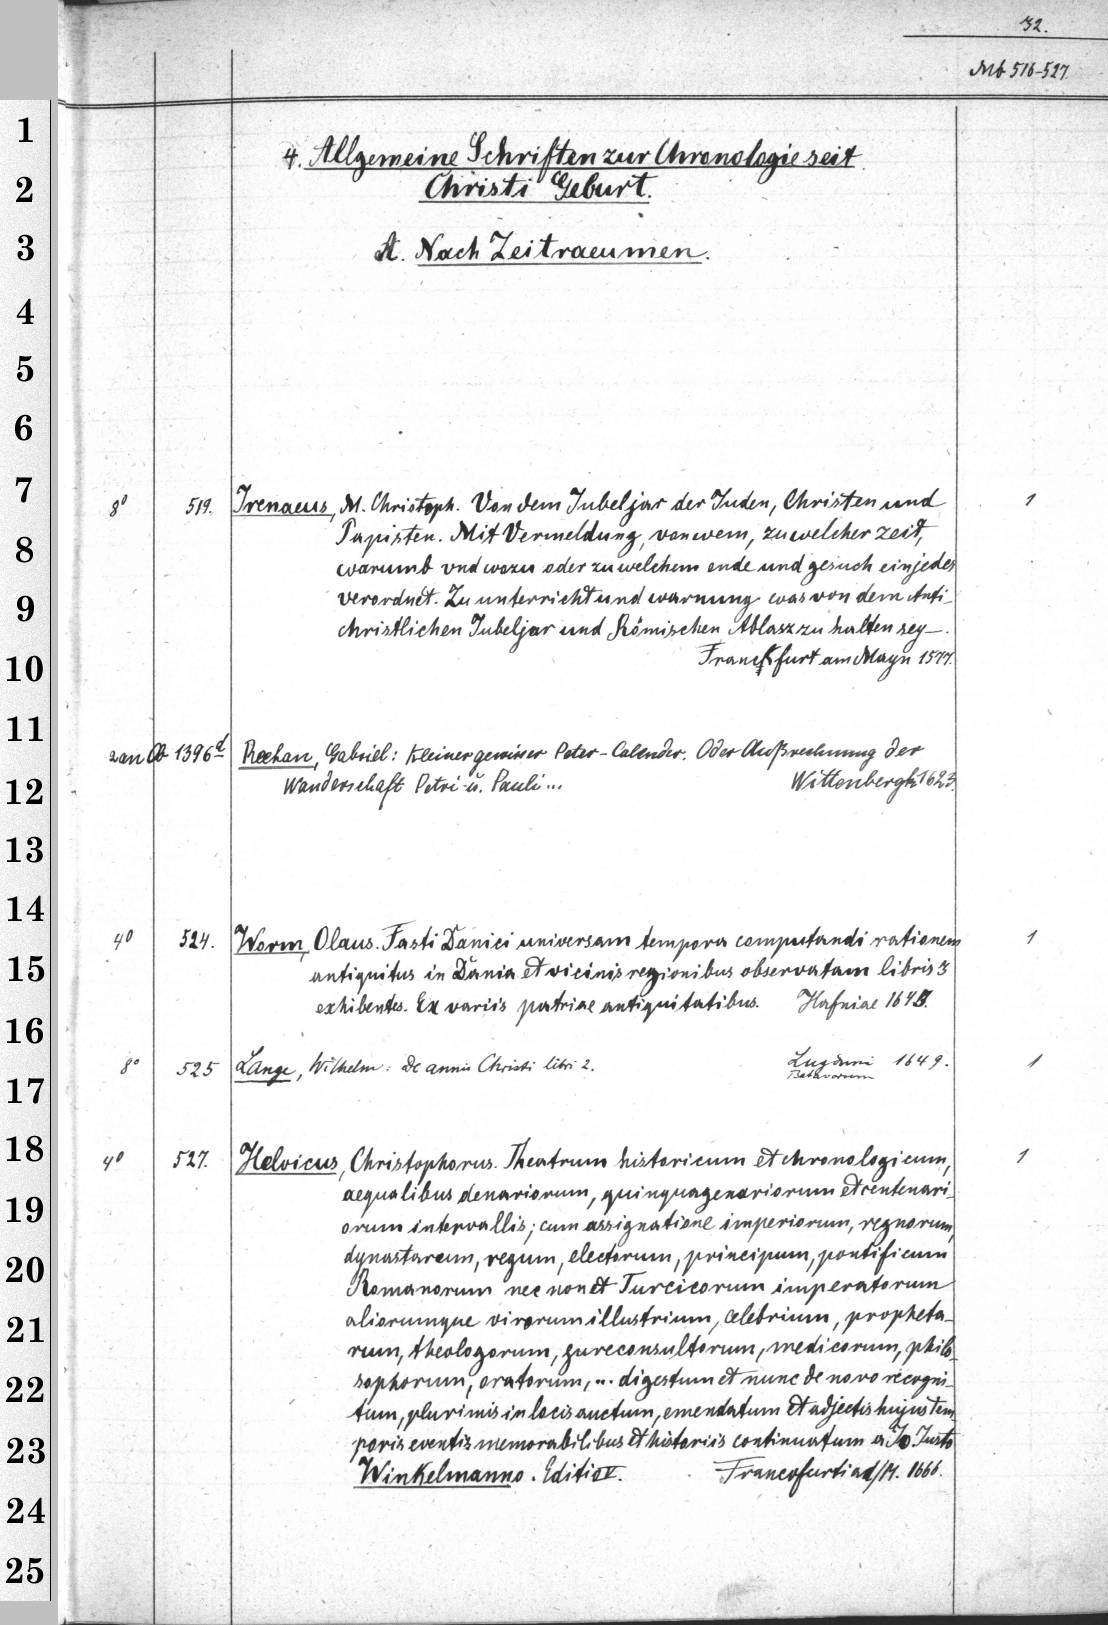 32.
Mb 516-527.
1
4. Allgemeine Schriften zur Chronologie seit
2
Christi Geburt.
3
A. Nach Zeitraeumen.
4
5
6
7
8° 519. Irenaeus, M. Christoph. Von dem Jubeljar der Juden, Christen und 1
8
Papisten. Mit Vermeldung, von wem, zu welcher zeit,
warumb vnd wozu oder zu welchem ende und gesuch ein jedes
9
verordnet. Zu unterricht und warnung was von dem Anti-
christlichen Jubeljar und Römischen Ablasz zu halten sey—.
10
Franckfurt am Mayn 1577.
11
an Ob 1396d Reehan, Gabriel: Kleiner gewisser Peter-Calender. Oder Außrechnung der
12
Wanderschaft Petri u. Pauli... Wittenbergk 1623.
13
14
4° 524. Worm, Olaus. Fasti Danici universam tempora computandi rationem 1
15
antiquitus in Dania et vicinis regionibus observatam libris 3
exhibentes. Ex variis patriae antiquitatibus. Hafniae 1643.
16
8° 525 Lange, Wilhelm: De annis Christi libri 2. Lugduni Batavorum 1649. 1
17
18
4° 527. Helvicus, Christophorus. Theatrum historicum et chronologicum, 1
aequalibus denariorum, quinquagenariorum et centenari-
19
orum intervallis; cum assignatione imperiorum, regnorum,
20
dynastarum, regum, electorum, principum, pontificum
Romanorum nec non et Turcicorum imperatorum
21
aliorumque virorum illustrium, celebrium, propheta-
rum, theologorum, jureconsultorum, medicorum, philo-
22
sophorum, oratorum, ... digestum et nunc de novo recogni-
tum, plurimis in locis auctum, emendatum et adjectis hujus tem
23
poris eventis memorabilibus et historiis continuatum a Jo. Justo
Winkelmanno. Editio V. Francofurti ad/M. 1666.
24
25